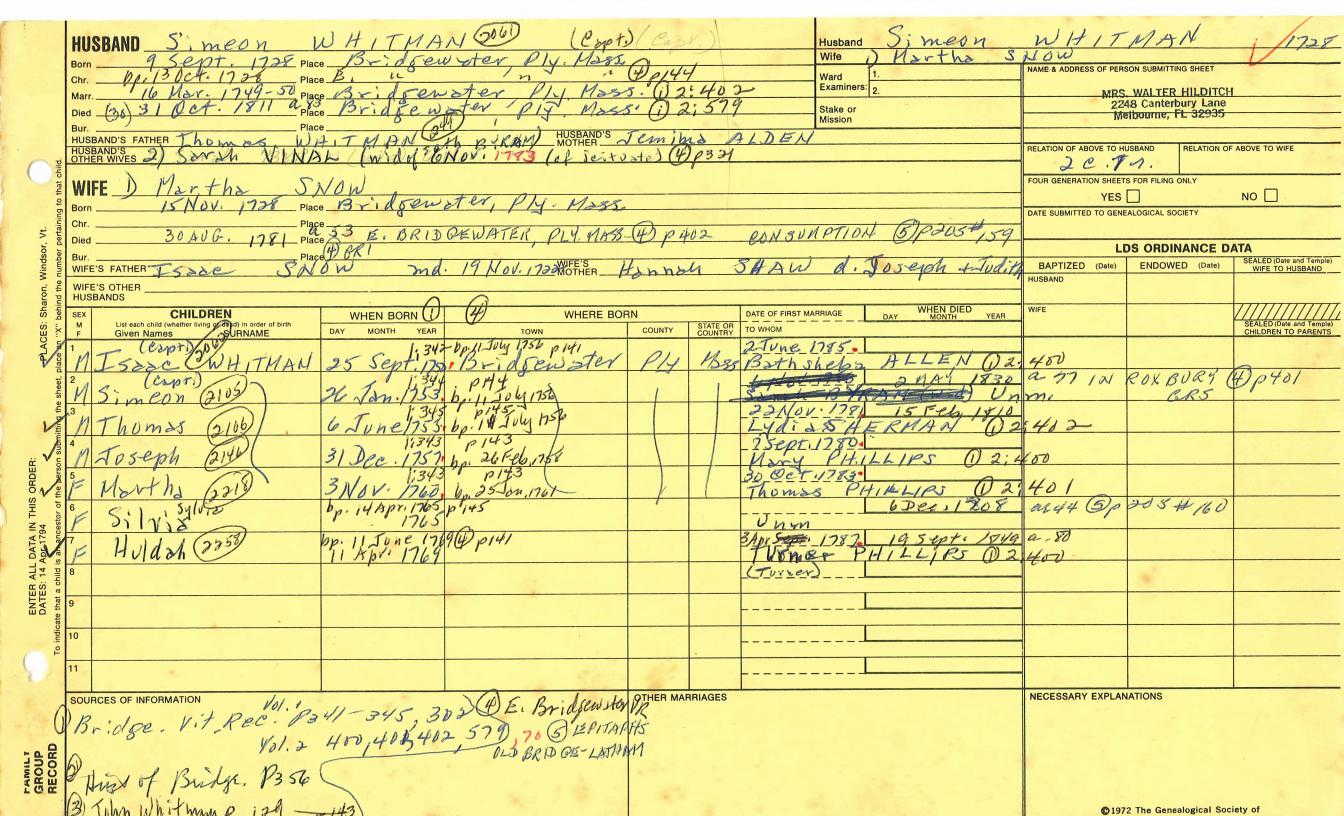 HUSBAND Simeon WHITMAN 2061 (Capt.)
Husband Simeon WHITMAN 1728
Wife 1) Martha SNOW
Born 9 Sept. 1728 Place Bridgewater, Ply. Mass.
Chr. bp. 13 Oct. 1728 Place E. " " " ④ p144
Marr. 16 Mar. 1749-50 Place Bridgewater Ply Mass. ① 2:402
Died (30) 31 Oct. 1811 a 83 Place Bridgewater, Ply Mass. ① 2:579
Bur. Place
Ward Examiners: 1. 2.
Stake or Mission
NAME & ADDRESS OF PERSON SUBMITTING SHEET
MRS. WALTER HILDITCH
2248 Canterbury Lane
Melbourne, FL 32935
HUSBAND'S FATHER Thomas WHITMAN HUSBAND'S MOTHER Jemima ALDEN
HUSBAND'S OTHER WIVES 2) Sarah VINAL 6 Nov. 1783 (of Scituate) ④ p321
RELATION OF ABOVE TO HUSBAND RELATION OF ABOVE TO WIFE
2 c.
WIFE 1) Martha SNOW
Born 15 Nov. 1728 Place Bridgewater, Ply. Mass.
Chr. Place
Died 30 AUG. 1781 a 53 Place E. BRIDGEWATER, PLY. MASS ④ p402 CONSUMPTION ⑤ p205 #159
Bur. Place ④ GR1
FOUR GENERATION SHEETS FOR FILING ONLY
YES NO
DATE SUBMITTED TO GENEALOGICAL SOCIETY
LDS ORDINANCE DATA
WIFE'S FATHER Isaac SNOW md. 19 Nov. 1722 WIFE'S MOTHER Hannah SHAW d. Joseph + Judith
WIFE'S OTHER HUSBANDS
BAPTIZED (Date) ENDOWED (Date) SEALED (Date and Temple) WIFE TO HUSBAND
HUSBAND
WIFE
SEALED (Date and Temple) CHILDREN TO PARENTS
SEX M F CHILDREN List each child (whether living or dead) in order of birth Given Names SURNAME
WHEN BORN ① DAY MONTH YEAR ④ WHERE BORN TOWN COUNTY STATE OR COUNTRY
DATE OF FIRST MARRIAGE TO WHOM WHEN DIED DAY MONTH YEAR
1 (Capt) 1:342 bp. 11 July 1756 p141 2 June 1785
M Isaac WHITMAN 25 Sept. Bridgewater Ply Mass Bathsheba ALLEN ① 2:400
2 (Capt.) 1:344 p144 2 MAY 1830 a 77 IN ROXBURY ④ p401
M Simeon 2105 26 Jan. 1753 bp. 11 July 1756 Unm. GRS
3 1:345 p145 22 Nov. 1781 15 Feb. 1810
M Thomas 2106 6 June 1755 bp. 11 July 1756 Lydia SHERMAN ① 2:402
4 1:343 p143 7 Sept. 1780
M Joseph 2146 31 Dec. 1757 bp. 26 Feb. 1758 Mary PHILLIPS ① 2:400
5 1:343 p143 30 Oct. 1783
F Martha 2218 3 Nov. 1760 bp. 25 Jan. 1761 Thomas PHILLIPS ① 2:401
6 Sylvia bp. 14 Apr. 1765 p145 6 Dec. 1808 a 44 ⑤ p205 #160
F Silvia 1765 Unm
7 bp. 11 June 1769 ④ p141 3 Apr 1787 19 Sept. 1849 a-80
F Huldah 2258 11 Apr. 1769 Turner PHILLIPS ① 2:400
8 (Turner)
9
10
11
SOURCES OF INFORMATION
OTHER MARRIAGES
NECESSARY EXPLANATIONS
① Bridge. Vit. Rec. Vol. 1 p341-345, 302 ④ E. Bridgewater VR
Vol. 2 400, 401, 402, 579, 70 ⑤ EPITAPHS
OLD BRIDGE-LATHAM
② Hist of Bridge. P356
③ John Whitman p. 129 — 143
©1972 The Genealogical Society of
ENTER ALL DATA IN THIS ORDER:
DATES: 14 Apr 1794 PLACES: Sharon, Windsor, Vt.
To indicate that a child is an ancestor of the person submitting the sheet, place an "X" behind the number pertaining to that child.
FAMILY GROUP RECORD